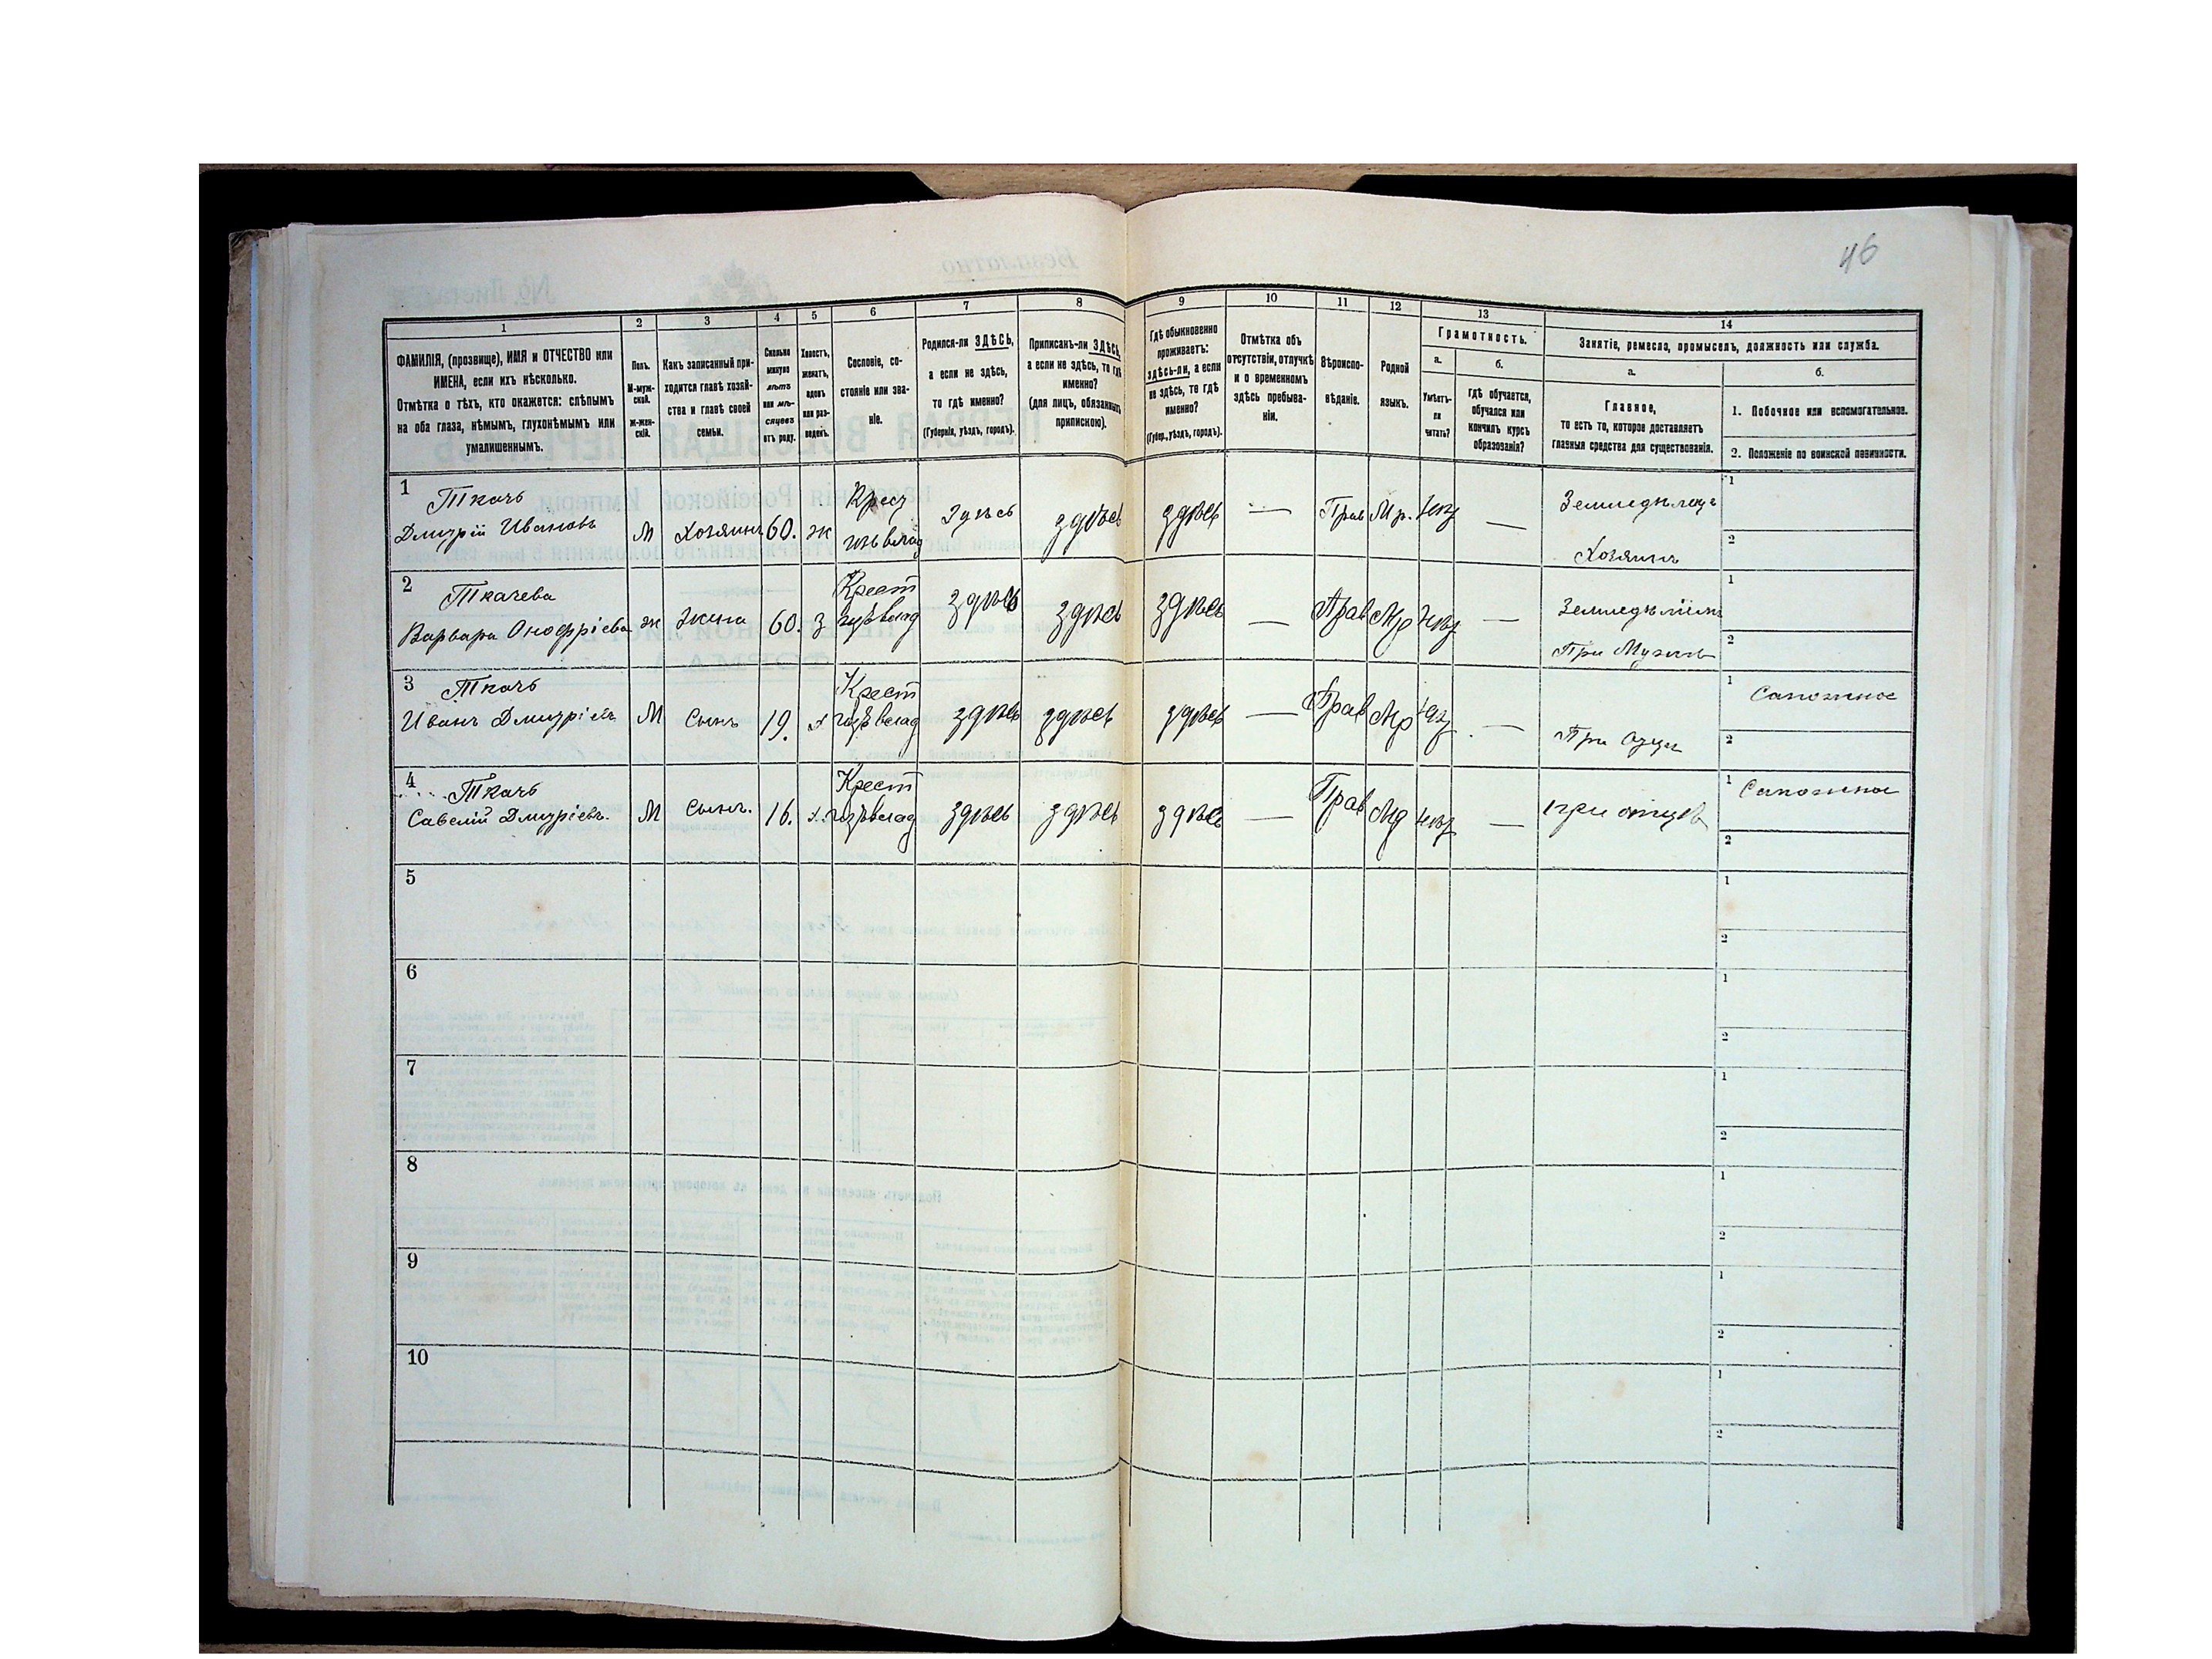 46
1 2 3 4 5 6 7 8 9 10 11 12 13 14
ФАМИЛІЯ, (прозвище), ИМЯ и ОТЧЕСТВО или
ИМЕНА, если ихъ нѣсколько.
Отмѣтка о тѣхъ, кто окажется: слѣпымъ
на оба глаза, нѣмымъ, глухонѣмымъ или
умалишеннымъ.
Полъ.
М-муж-
ской.
ж-жен-
скій.
Какъ записанный при-
ходится главѣ хозяй-
ства и главѣ своей
семьи.
Сколько
минуло
лѣтъ
или мѣ-
сяцевъ
отъ роду.
Холостъ,
женатъ,
вдовъ
или раз-
веденъ.
Сословіе, со-
стояніе или зва-
ніе.
Родился-ли ЗДѢСЬ,
а если не здѣсь,
то гдѣ именно?
(Губернія, уѣздъ, городъ).
Приписанъ-ли ЗДѢСЬ,
а если не здѣсь, то гдѣ
именно?
(для лицъ, обязанныхъ
припискою).
Гдѣ обыкновенно
проживаетъ:
здѣсь-ли, а если
не здѣсь, то гдѣ
именно?
(Губер., уѣздъ, городъ).
Отмѣтка объ
отсутствіи, отлучкѣ
и о временномъ
здѣсь пребыва-
ніи.
Вѣроиспо-
вѣданіе.
Родной
языкъ.
Грамотность.
а.
Умѣетъ-
ли
читать?
б.
Гдѣ обучается,
обучался или
кончилъ курсъ
образованія?
Занятіе, ремесло, промыселъ, должность или служба.
а.
Главное,
то есть то, которое доставляетъ
главныя средства для существованія.
б.
1. Побочное или вспомогательное.
2. Положеніе по воинской повинности.
1 Ткачъ Крест Земледѣлецъ 1
Дмитрій Ивановъ М Хозяинъ 60. ж изъ влад здѣсь здѣсь здѣсь — Прав Мр. нѣт — Хозяинъ 2
2 Ткачева Крест Земледѣліемъ 1
Варвара Онофріева ж жена 60. з изъ влад здѣсь здѣсь здѣсь — Прав Мр нѣт — При Мужѣ 2
3 Ткачъ Крест 1 Сапожное
Иванъ Дмитріевъ М Сынъ 19. х изъ влад здѣсь здѣсь здѣсь — Прав Мр — При Отцѣ 2
4 Ткачъ Крест 1 Сапожное
Савелій Дмитріевъ. М Сынъ. 16. х. изъ влад здѣсь здѣсь здѣсь — Прав Мр нѣт — при отцѣ 2
5 1
2
6 1
2
7 1
2
8 1
2
9 1
2
10 1
2